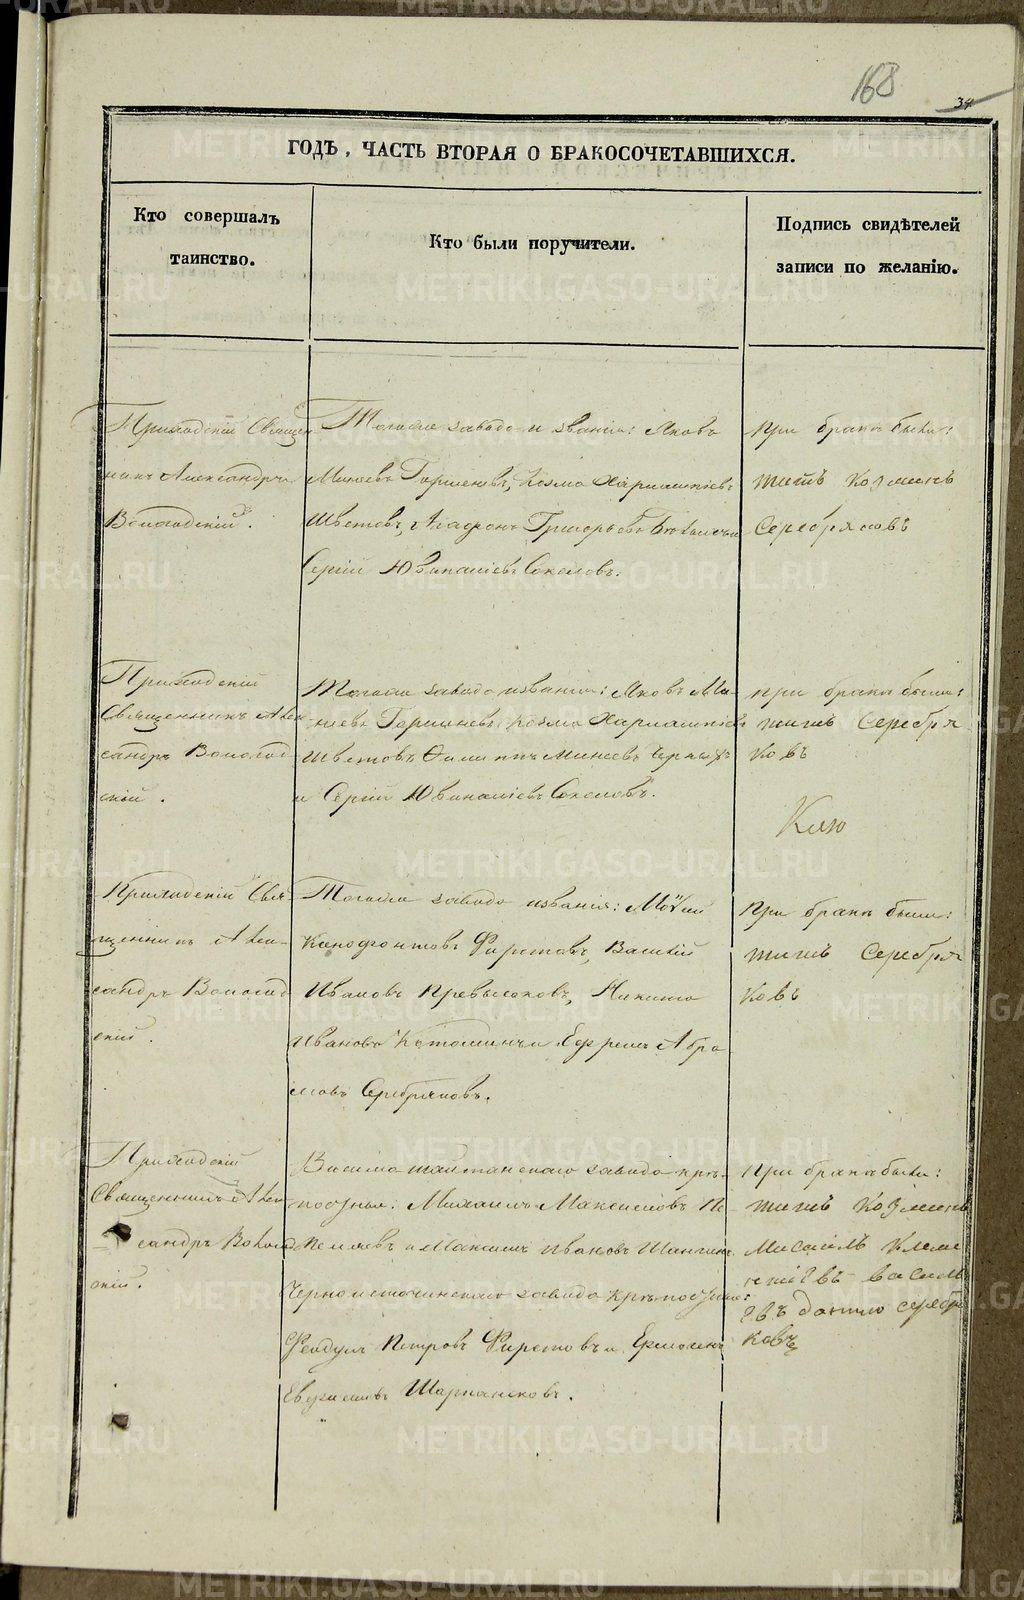 168
34
ГОДЪ, ЧАСТЬ ВТОРАЯ О БРАКОСОЧЕТАВШИХСЯ.
Кто совершалъ
таинство.
Кто были поручители.
Подпись свидѣтелей
записи по желанію.
Приходскій Священ
никъ Александръ
Вологодскій.
Тогоже завода и званія: Яковъ
Минѣевъ Горшеневъ, Козма Харлампіевъ
Цвѣтовъ, Григорьевъ
Сергій Ювиналіевъ Соколовъ.
При бракѣ были:
титъ Козминъ
Серебряковъ
Приходскій
Священникъ Алек
сандръ Вологод
скій.
Тогоже завода и званія: Яковъ Ми
нѣевъ Горшеневъ, Козма Харлампіевъ
Цвѣтовъ Филиппъ Минѣевъ Черныхъ
и Сергій Ювиналіевъ Соколовъ.
При бракѣ были:
титъ Серебря
ковъ
Приходскій Свя
щенникъ Алек
сандръ Вологод
скій.
Тогоже завода и званія: Моѵсей
Ксенофонтовъ Фирстовъ, Василій
Ивановъ Превысоковъ, Никита
Ивановъ и Ефремъ Абра
мовъ Серебряковъ.
При бракѣ были:
титъ Серебря
ковъ
Приходскій
Священникъ Алек
сандръ Вологод
скій.
Висимошайтанскаго завода крѣ
постные: Михаилъ Максимовъ
и Максимъ Ивановъ
Черноисточинскаго завода крѣпостные:
Феодулъ Петровъ Фирстовъ и Ермолай
Евдокимовъ
При бракѣ были:
титъ Козминъ
Мисаилъ Климе
нтіевъ Василь
евъ данило серебря
ковъ
METRIKI.GASO-URAL.RU